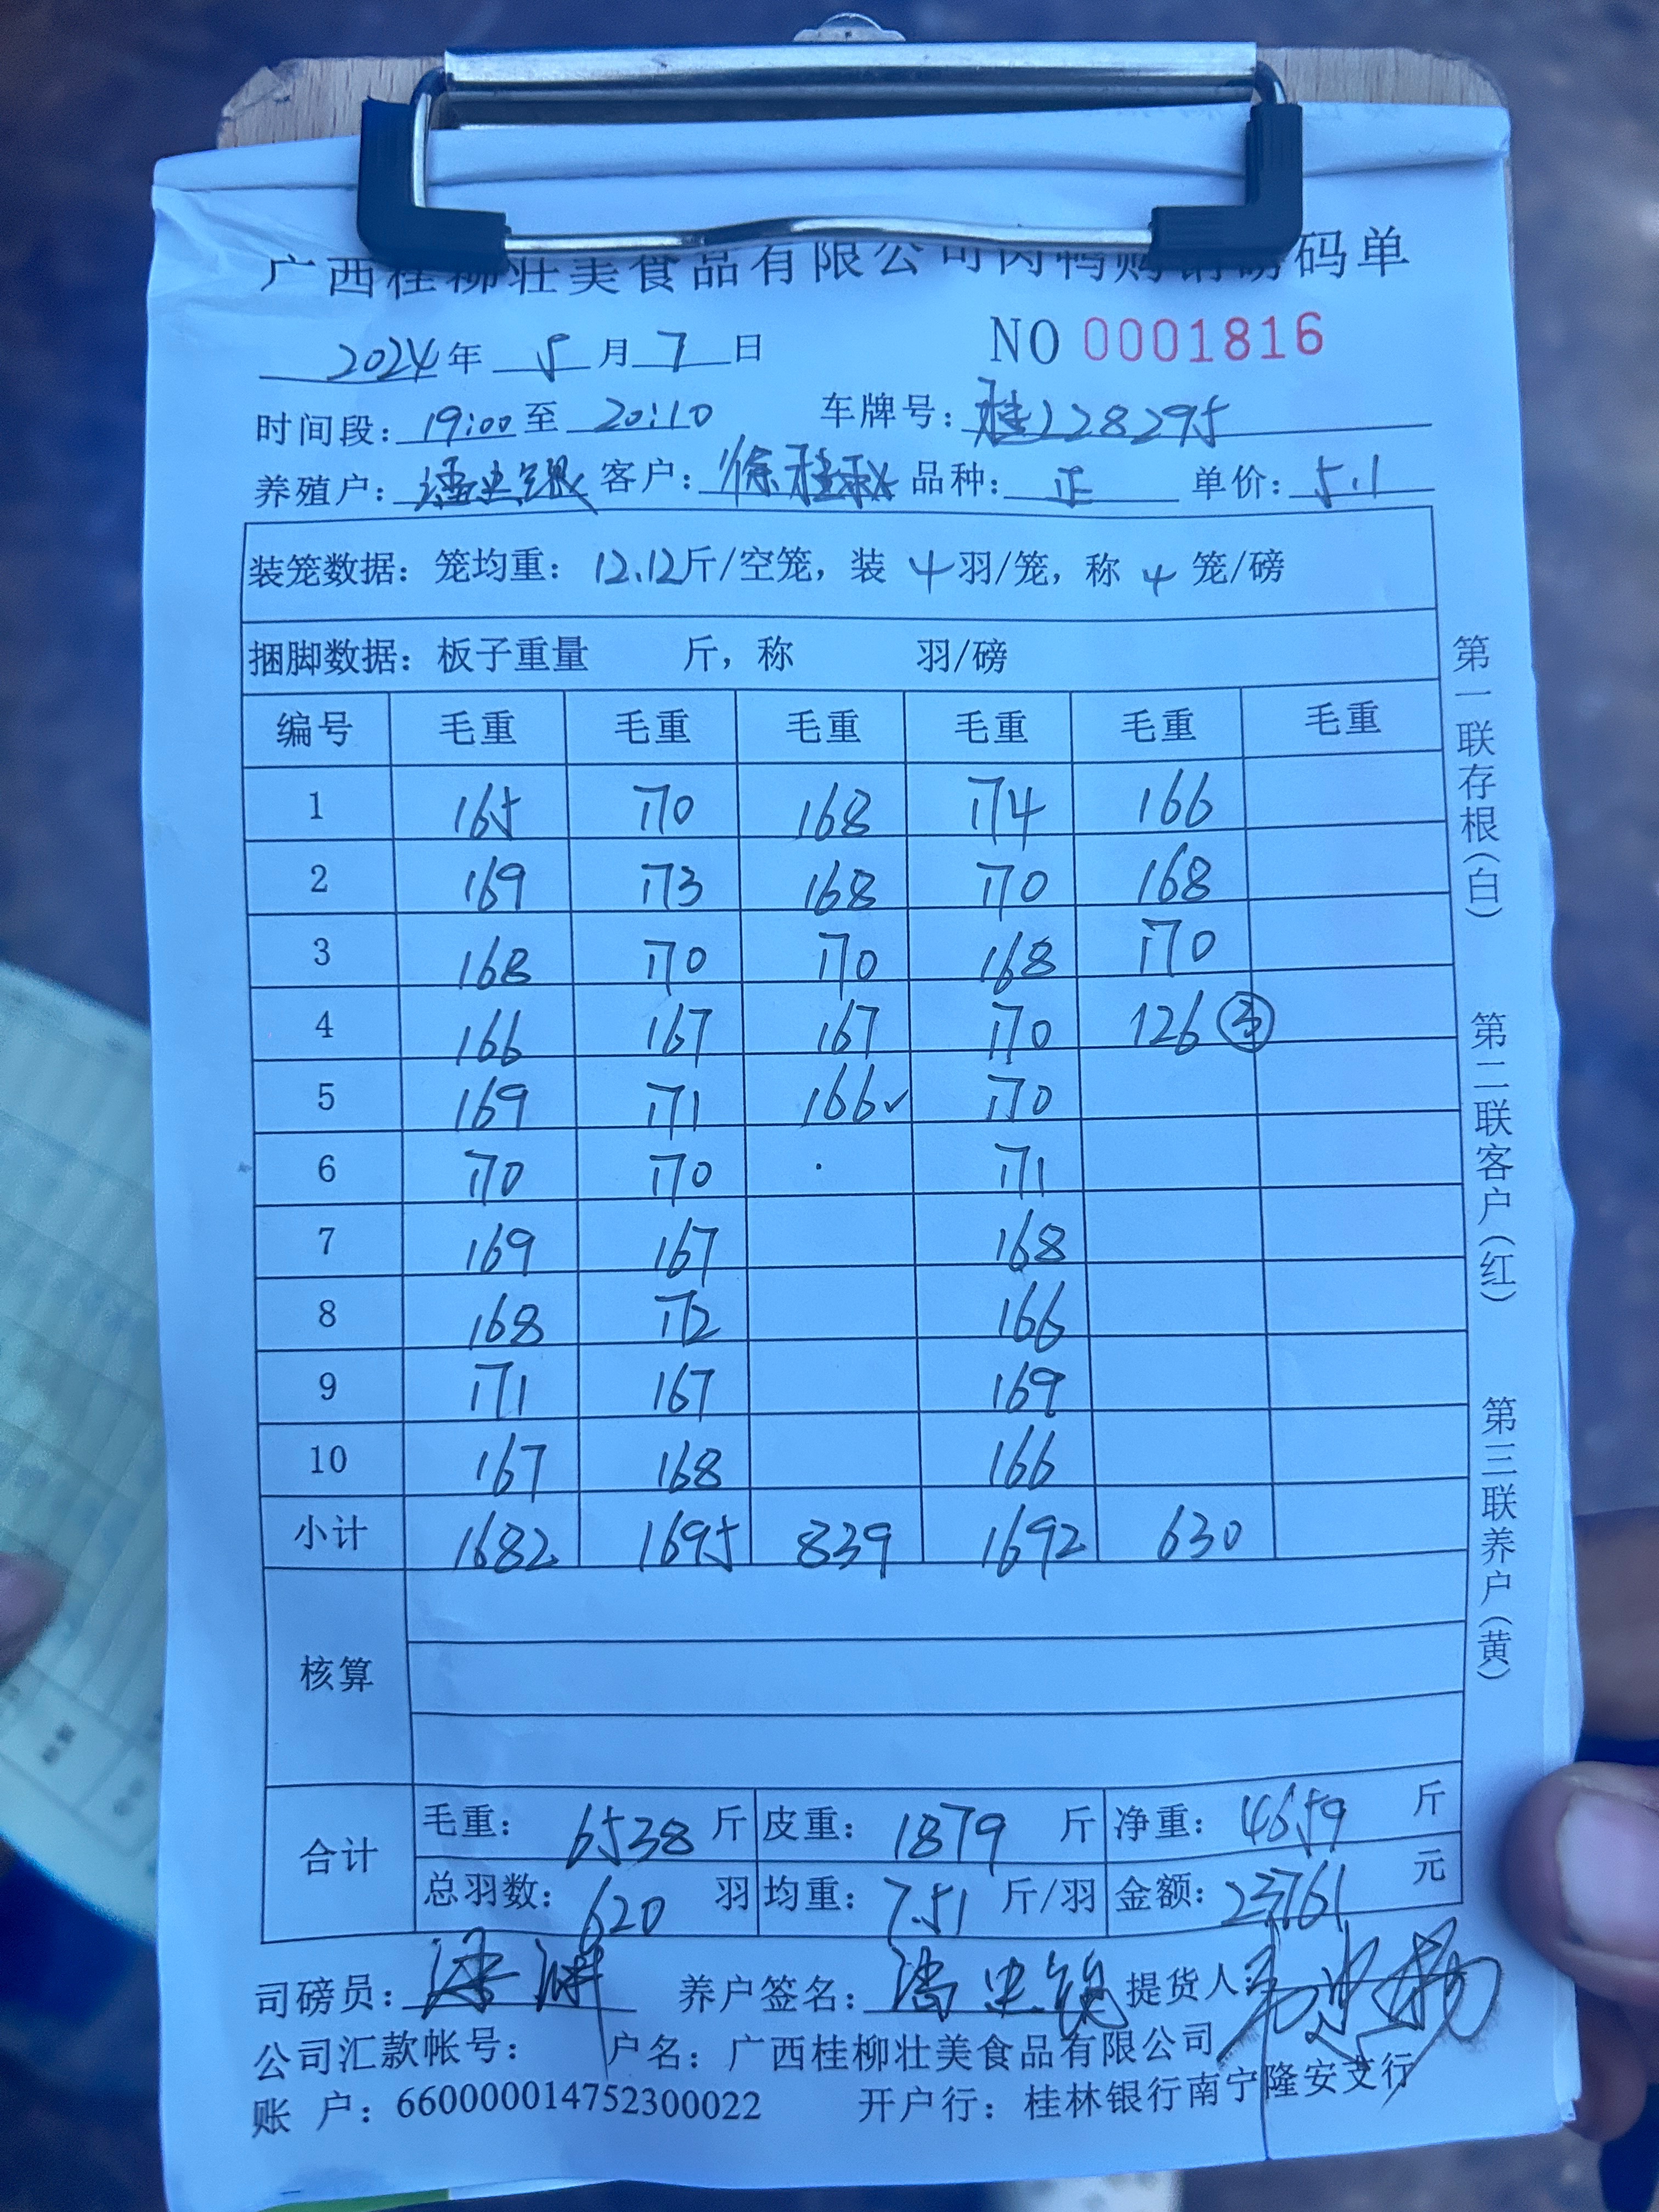 广西桂柳壮美食品有限公司肉鸭购销磅码单
2024年 5月7日 NO 0001816
时间段：19:00至 20:10 车牌号：桂J28295
养殖户： 客户：徐桂秋 品种：正 单价：5.1
装笼数据：笼均重：12.12斤/空笼，装 4羽/笼，称 4 笼/磅
捆脚数据：板子重量 斤，称 羽/磅
编号 毛重 毛重 毛重 毛重 毛重 毛重
1 165 170 168 174 166
2 169 173 168 170 168
3 168 170 170 168 170
4 166 167 167 170 126 ③
5 169 171 166✓ 170
6 170 170 · 171
7 169 167 168
8 168 172 166
9 171 167 169
10 167 168 166
小计 1682 1695 839 1692 630
核算
合计
毛重：6538斤 皮重：1879斤 净重：4659斤
总羽数：620羽 均重：7.51斤/羽 金额：23761元
司磅员： 养户签名： 提货人：
公司汇款帐号： 户名：广西桂柳壮美食品有限公司
账 户：660000014752300022 开户行：桂林银行南宁隆安支行
第一联存根（白） 第二联客户（红） 第三联养户（黄）